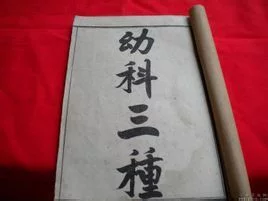 幼科三種